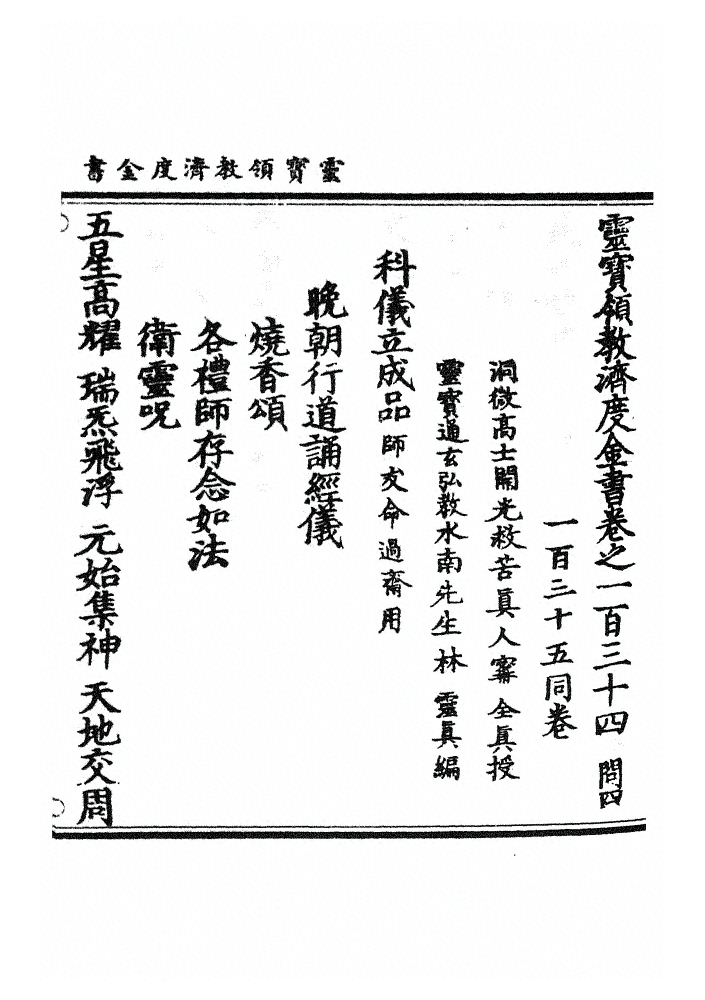 靈寶領教濟度金書
靈寶領教濟度金書卷之一百三十四 問四
一百三十五同卷
洞微高士開光救苦眞人甯 全眞授
靈寶通玄弘教水南先生林 靈眞編
科儀立成品 師友命過齋用
晚朝行道誦經儀
燒香頌
各禮師存念如法
衛靈呪
五星高耀 瑞炁飛浮 元始集神 天地交周